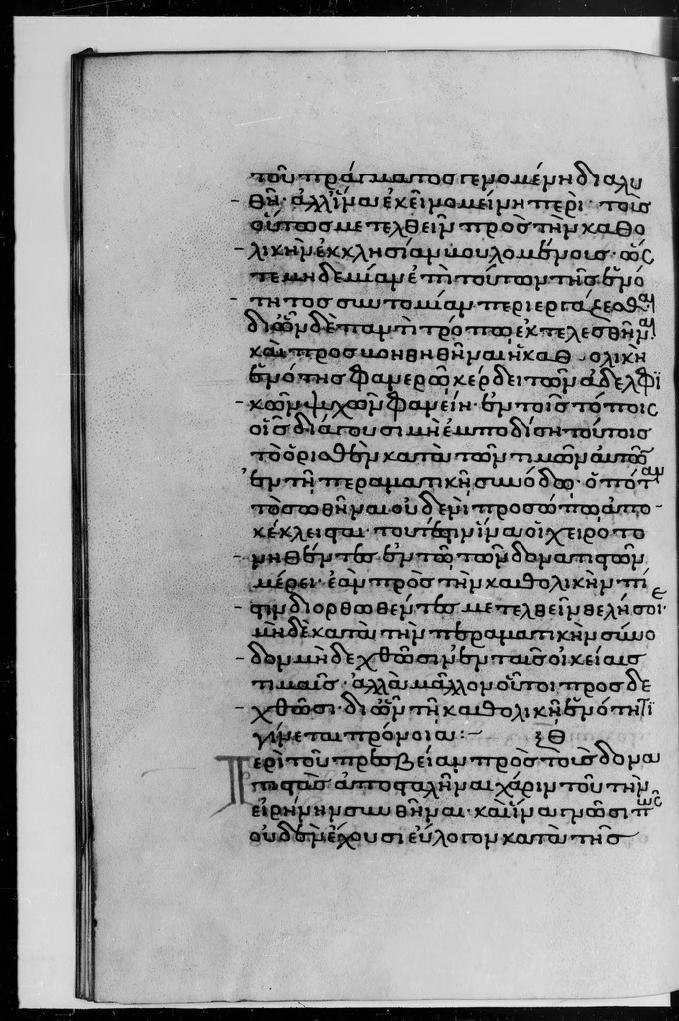 τοῦ πράγματος γενομένη διαλυ
θῆ· ἀλλ' ἵνα ἐκεῖνο μείνη περὶ τοὺς
οὕτως μετελθεῖν πρὸς τὴν καθο
λικὴν ἐκκλησίαν βουλομένους· ὥς
τε μηδεμίαν ἐπὶ τούτων τῆς ἑνό
τητος συντομίαν περιεργάζεσθαι
δι' ὧν δὲ παντὶ τρόπω ἐκτελεσθῆναι
καὶ προσβοηθηθῆναι ἡ καθολικὴ
ἑνότης φανερῶ κέρδει τῶν ἀδελφι
κῶν ψυχῶν φανείη· ἐν τοῖς τόποις
οἷς διάγουσι μὴ ἐμποδίση τούτοις
τὸ ὁρισθὲν κατὰ τῶν τιμῶν αὐτῶν
ἐν τῆ περαματικῆ συνόδω· ὁπόταν
τὸ σωθῆναι οὐδενὶ προσώπω ἀπο
κέκλεισται· τουτέστιν ἵνα οἱ χειροτο
νηθέντες ἐν τῶ τῶν δονατιστῶν
μέρει· ἐὰν πρὸς τὴν καθολικὴν πί
στιν διορθωθέντες μετελθεῖν θελήσοιεν·
μὴ δὲ κατὰ τὴν περαματικὴν σύνο
δον μὴ δεχθῶσιν ἐν ταῖς οἰκείαις
τιμαῖς· ἀλλὰ μᾶλλον οὗτοι προσδε
χθῶσι· δι' ὧν τῆ καθολικῆ ἑνότητι
γίνεται πρόνοια:~ ξθ
Περὶ τοῦ πρεσβείαν πρὸς τοὺς δονα
τιστὰς ἀποσταλῆναι χάριν τοῦ τὴν
εἰρήνην συνθῆναι· καὶ ἵνα γνῶσι πῶς
οὐδὲν ἔχουσι εὔλογον κατὰ τῆς